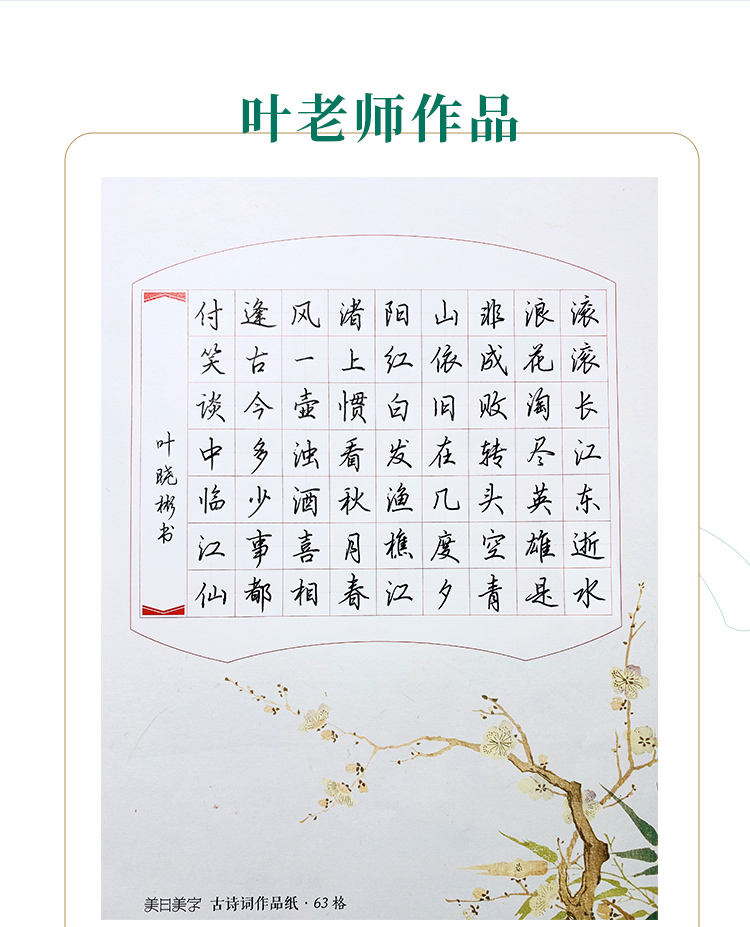 叶老师作品
滚滚长江东逝水
浪花淘尽英雄是
非成败转头空青
山依旧在几度夕
阳红白发渔樵江
渚上惯看秋月春
风一壶浊酒喜相
逢古今多少事都
付笑谈中临江仙
叶晓彬书
美日美字 古诗词作品纸·63格